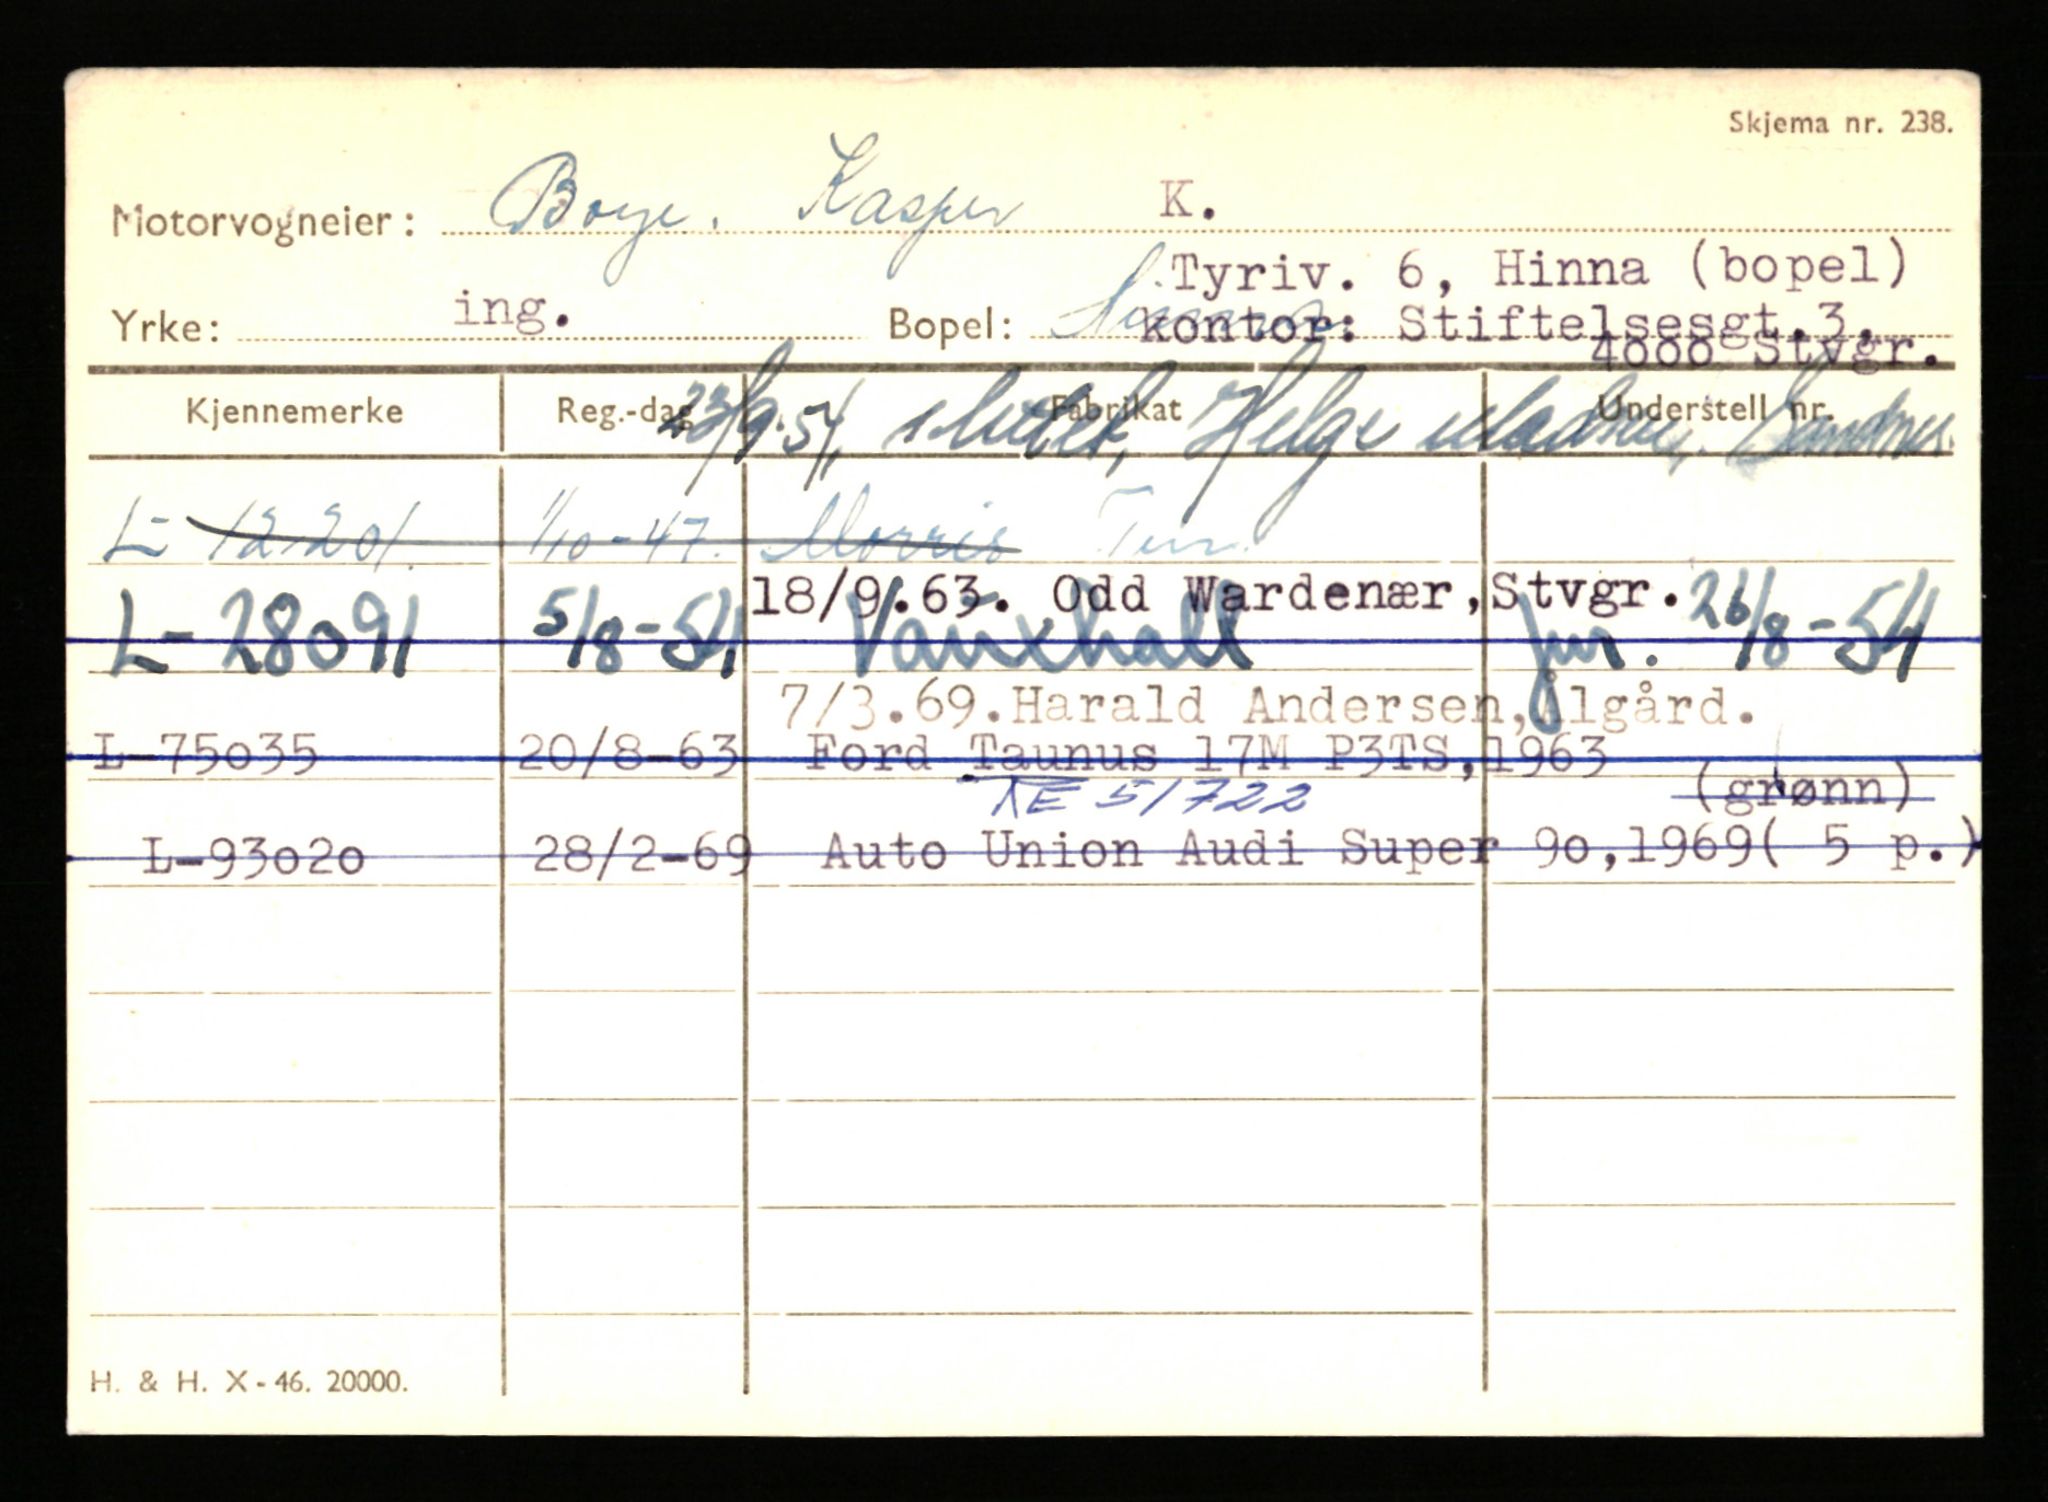 Skjema nr. 238.
Motorvogneier: Boye, Kasper K.
Tyriv. 6, Hinna (bopel)
Yrke: ing. Bopel: kontor: Stiftelsesgt.3,
4000 Stvgr.
Kjennemerke Reg.-dag Fabrikat Understell nr.
23/9.54, Helge Sandnes.
L-12201. 1/10-47. Morris Tur.
18/9.63. Odd Wardenær,Stvgr.
L-28091 5/8-54 Vauxhall 26/8-54
7/3.69.Harald Andersen,Ålgård.
L-75035 20/8-63 Ford Taunus 17M P3TS,1963
KE 51722 (grønn)
L-93020 28/2-69 Auto Union Audi Super 90,1969( 5 p.)
H. & H. X-46. 20000.